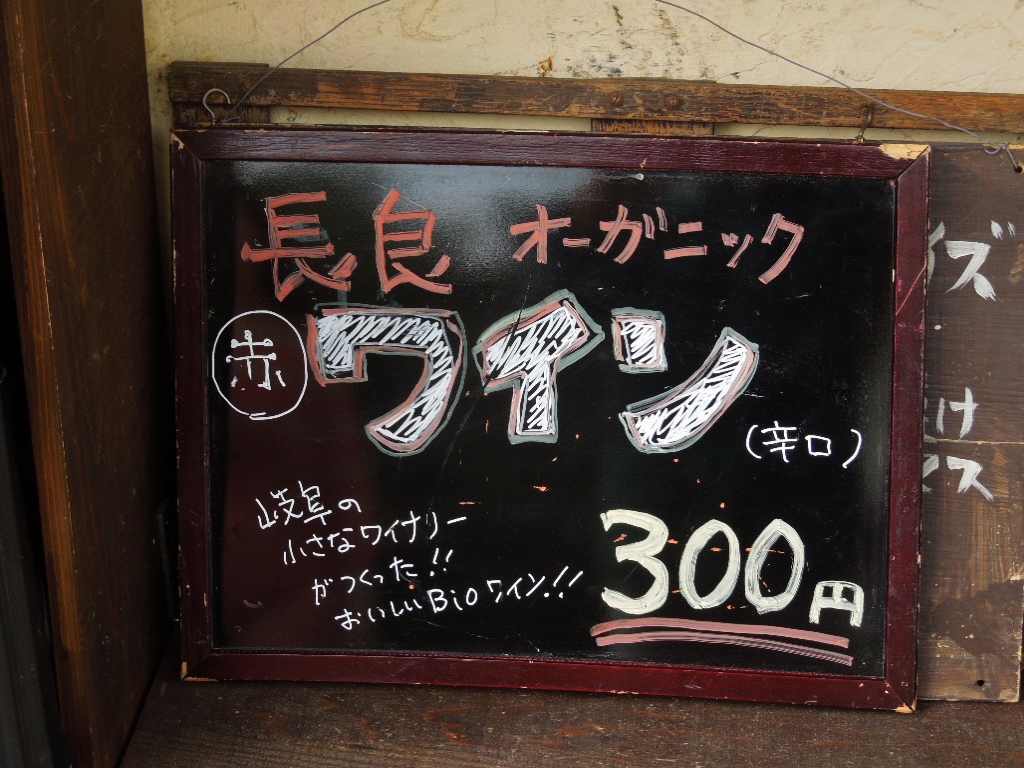 長良 オーガニック
赤 ワイン
(辛口)
岐阜の
小さなワイナリー
がつくった!!
おいしいBioワイン!!
300円
ズ
け
ス